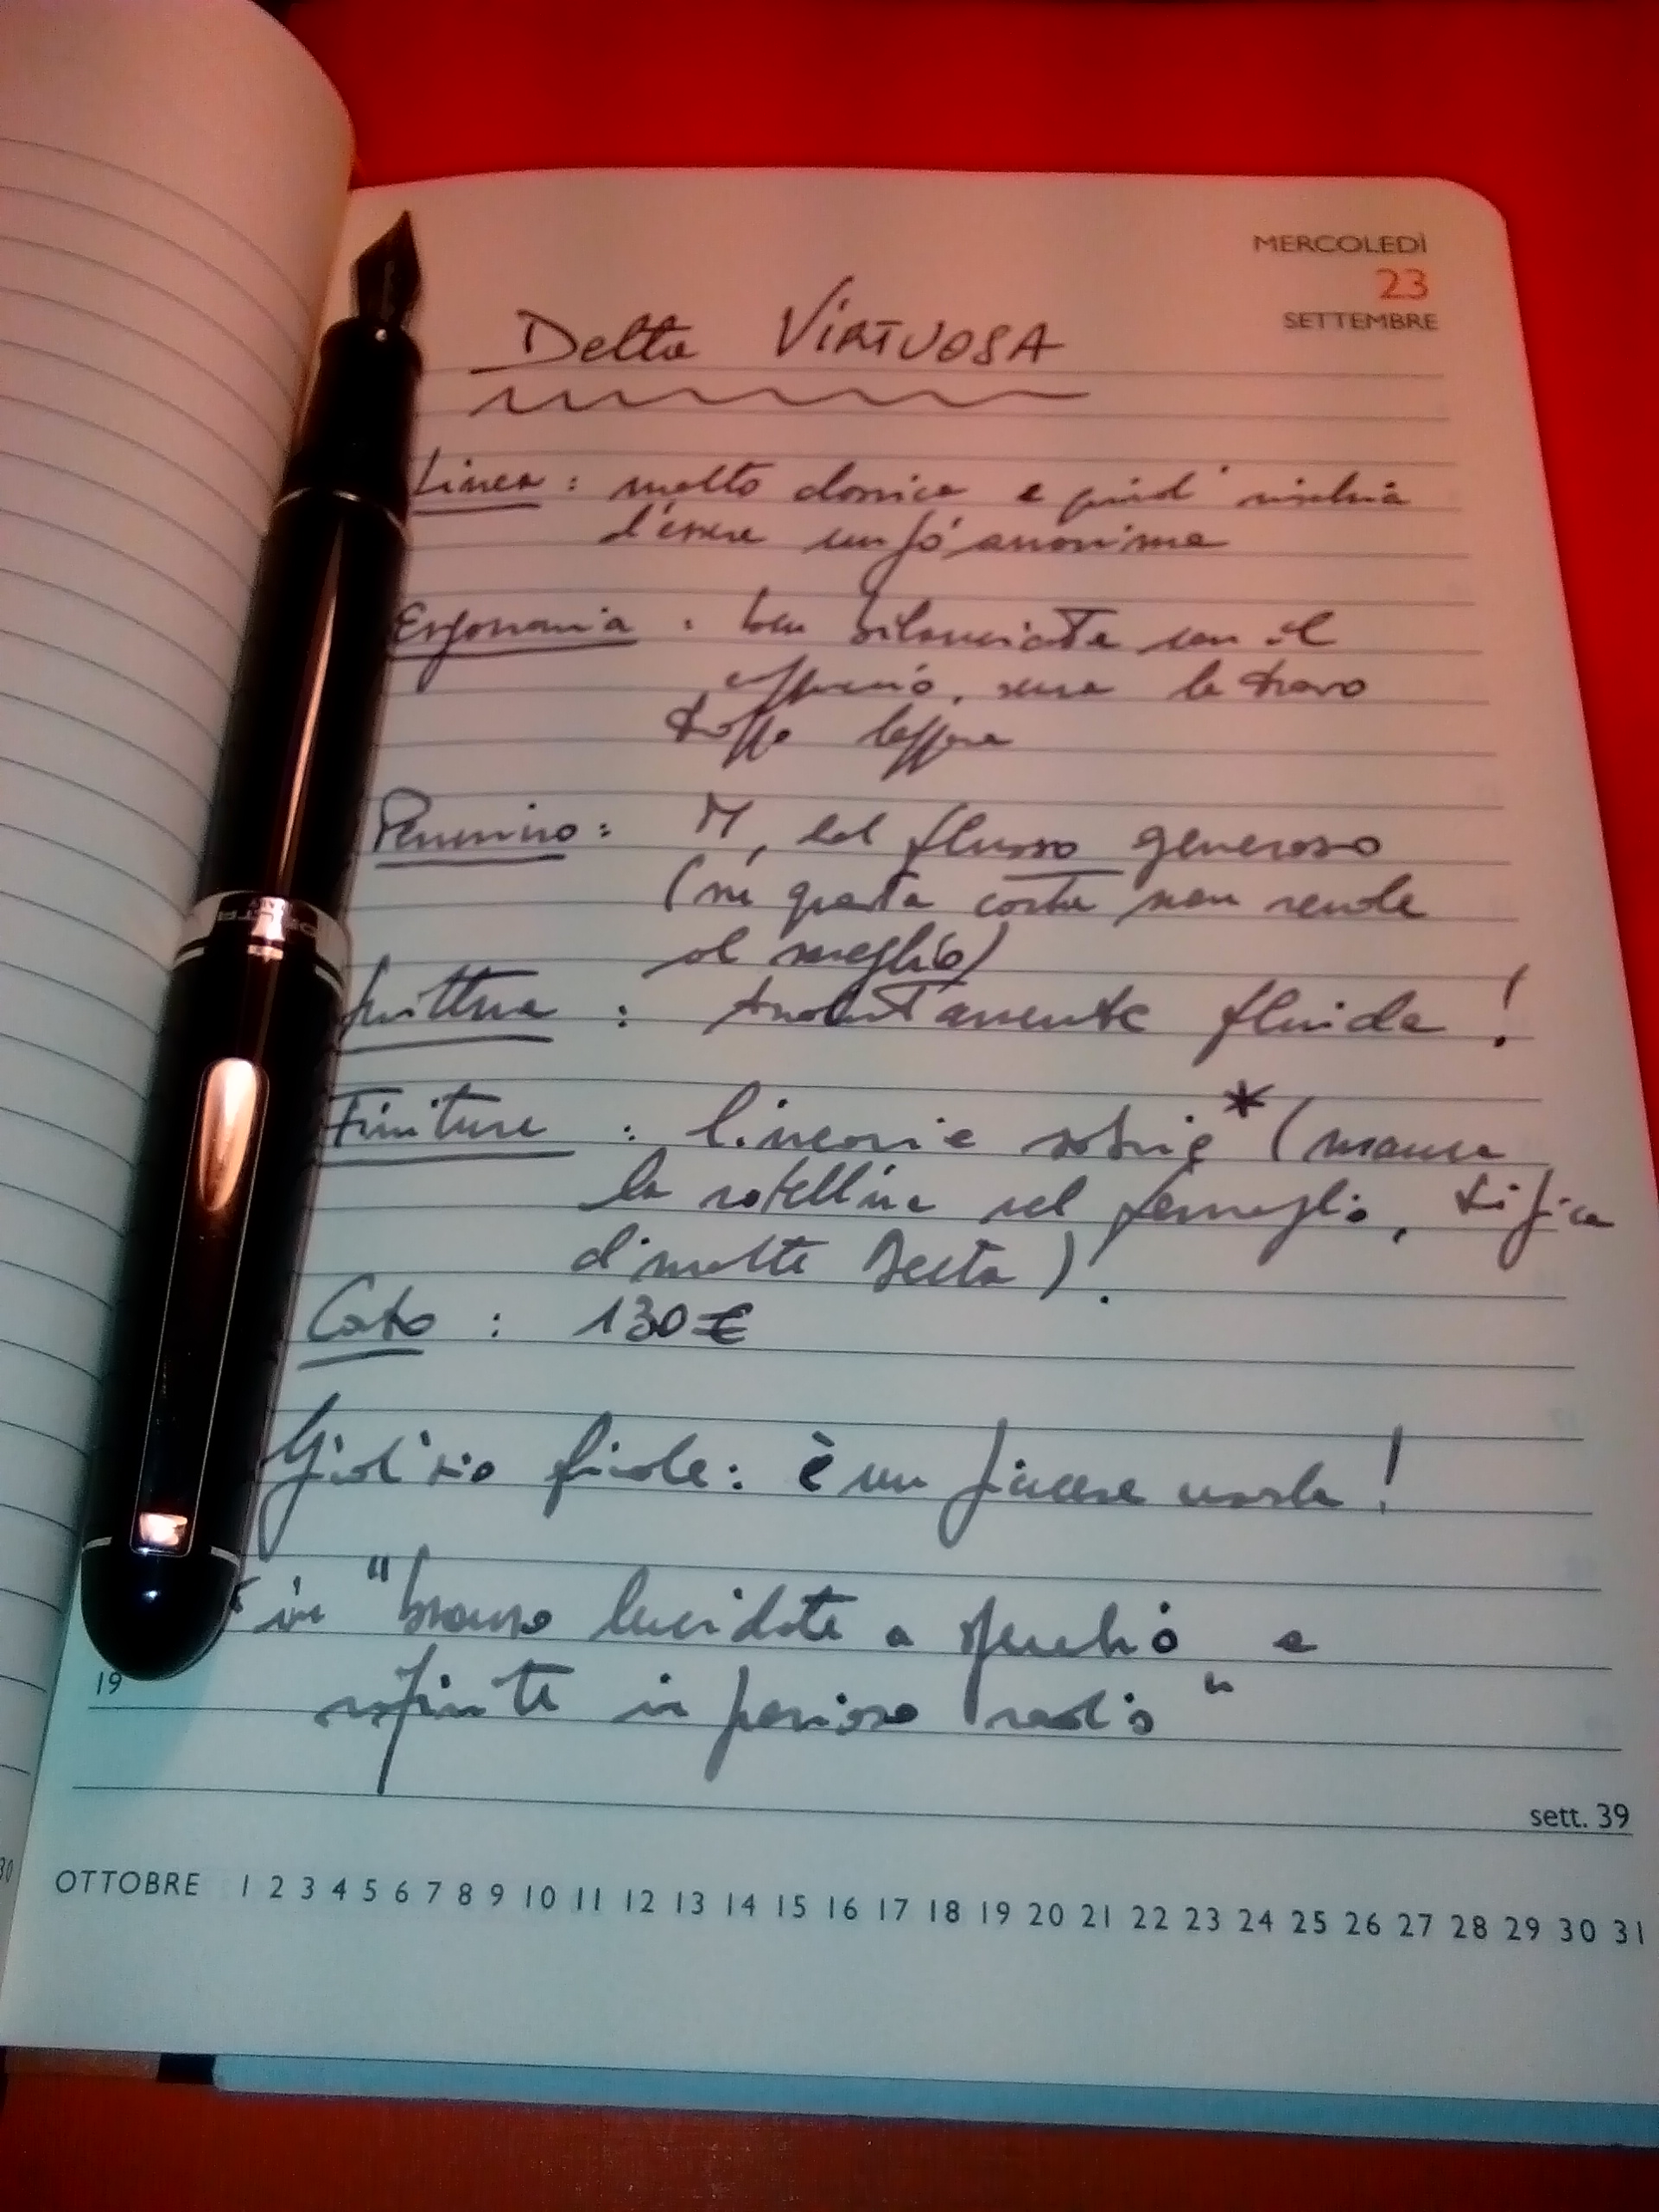 MERCOLEDÌ
23
SETTEMBRE
Delta VIRTUOSA
Linea : molto classica e quindi rischia
d'essere un pó anonima
Ergonomia : ben bilanciata con il
cappuccio, senza la trovo
troppo leggera
Pennino : M, dal flusso generoso
(su questa carta non rende
al meglio)
Scrittura : assolutamente fluida !
Finiture : lineari e sobrie * (manca
la rotellina sul fermaglio, tipica
di molte Delta) !
Costo : 130 €
Giudizio finale : è un piacere usarla !
* in "bronzo lucidate a specchio e
rifinite in prezioso rodio"
19
sett. 39
30
OTTOBRE 1 2 3 4 5 6 7 8 9 10 11 12 13 14 15 16 17 18 19 20 21 22 23 24 25 26 27 28 29 30 31
DELTA